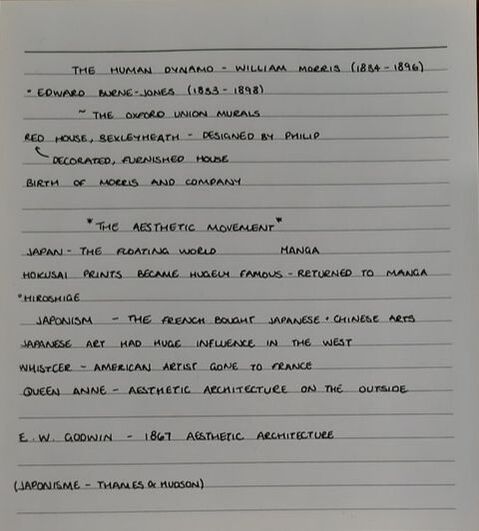 THE HUMAN DYNAMO - WILLIAM MORRIS (1834 - 1896)
* EDWARD BURNE-JONES (1833 - 1898)
~ THE OXFORD UNION MURALS
RED HOUSE, BEXLEYHEATH - DESIGNED BY PHILIP
DECORATED, FURNISHED HOUSE
BIRTH OF MORRIS AND COMPANY
*THE AESTHETIC MOVEMENT*
JAPAN - THE FLOATING WORLD MANGA
HOKUSAI PRINTS BECAME HUGELY FAMOUS - RETURNED TO MANGA
*HIROSHIGE
JAPONISM - THE FRENCH BOUGHT JAPANESE + CHINESE ARTS
JAPANESE ART HAD HUGE INFLUENCE IN THE WEST
WHISTLER - AMERICAN ARTIST GONE TO FRANCE
QUEEN ANNE - AESTHETIC ARCHITECTURE ON THE OUTSIDE
E.W. GODWIN - 1867 AESTHETIC ARCHITECTURE
(JAPONISME - THAMES & HUDSON)